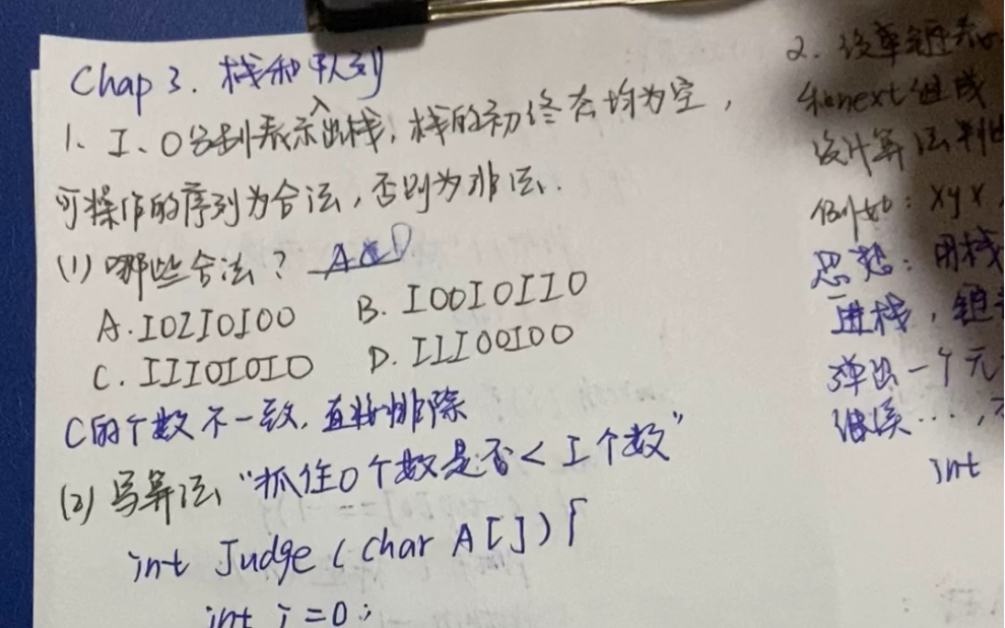 Chap 3. 栈和队列
1. I、O分别表示入出栈,栈的初终态均为空,
可操作的序列为合法,否则为非法.
(1) 哪些合法? A和D
A. IOIIOIOO B. IOOIOIIO
C. IIIOIOIO D. IIIOOIOO
C的个数不一致,直接排除
(2) 写算法 "抓住O个数是否< I个数"
int Judge (char A[]) {
int i=0;
2. 设单链表
和next组成
设计算法判
例如: xyx
思想: 用栈
进栈,
弹出一个元
继续...,
int